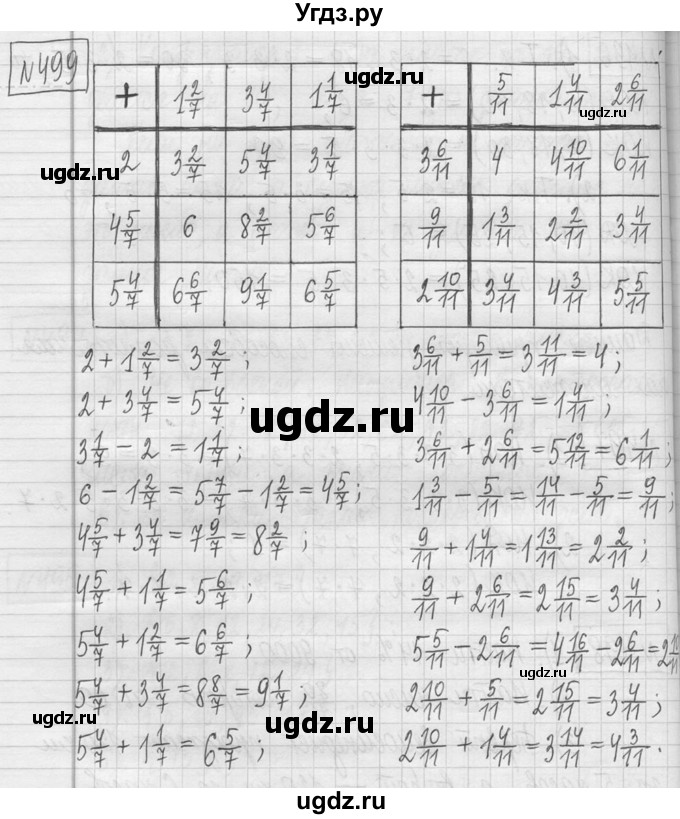 Угдз.ру
№499
+ 1 2/7 3 4/7 1 1/7
2 3 2/7 5 4/7 3 1/7
4 5/7 6 8 2/7 5 6/7
5 4/7 6 6/7 9 1/7 6 5/7
+ 5/11 1 4/11 2 6/11
3 6/11 4 4 10/11 6 1/11
9/11 1 3/11 2 2/11 3 4/11
2 10/11 3 4/11 4 3/11 5 5/11
2 + 1 2/7 = 3 2/7 ;
2 + 3 4/7 = 5 4/7 ;
3 1/7 − 2 = 1 1/7 ;
6 − 1 2/7 = 5 7/7 − 1 2/7 = 4 5/7 ;
4 5/7 + 3 4/7 = 7 9/7 = 8 2/7 ;
4 5/7 + 1 1/7 = 5 6/7 ;
5 4/7 + 1 2/7 = 6 6/7 ;
5 4/7 + 3 4/7 = 8 8/7 = 9 1/7 ;
5 4/7 + 1 1/7 = 6 5/7 ;
3 6/11 + 5/11 = 3 11/11 = 4 ;
4 10/11 − 3 6/11 = 1 4/11 ;
3 6/11 + 2 6/11 = 5 12/11 = 6 1/11 ;
1 3/11 − 5/11 = 14/11 − 5/11 = 9/11 ;
9/11 + 1 4/11 = 1 13/11 = 2 2/11 ;
9/11 + 2 6/11 = 2 15/11 = 3 4/11 ;
5 5/11 − 2 6/11 = 4 16/11 − 2 6/11 = 2 10/11
2 10/11 + 5/11 = 2 15/11 = 3 4/11 ;
2 10/11 + 1 4/11 = 3 14/11 = 4 3/11 .
ugdz.ru
ugdz.ru
ugdz.ru
ugdz.ru
ugdz.ru
ugdz.ru
ugdz.ru
ugdz.ru
ugdz.ru
ugdz.ru
ugdz.ru
ugdz.ru
ugdz.ru